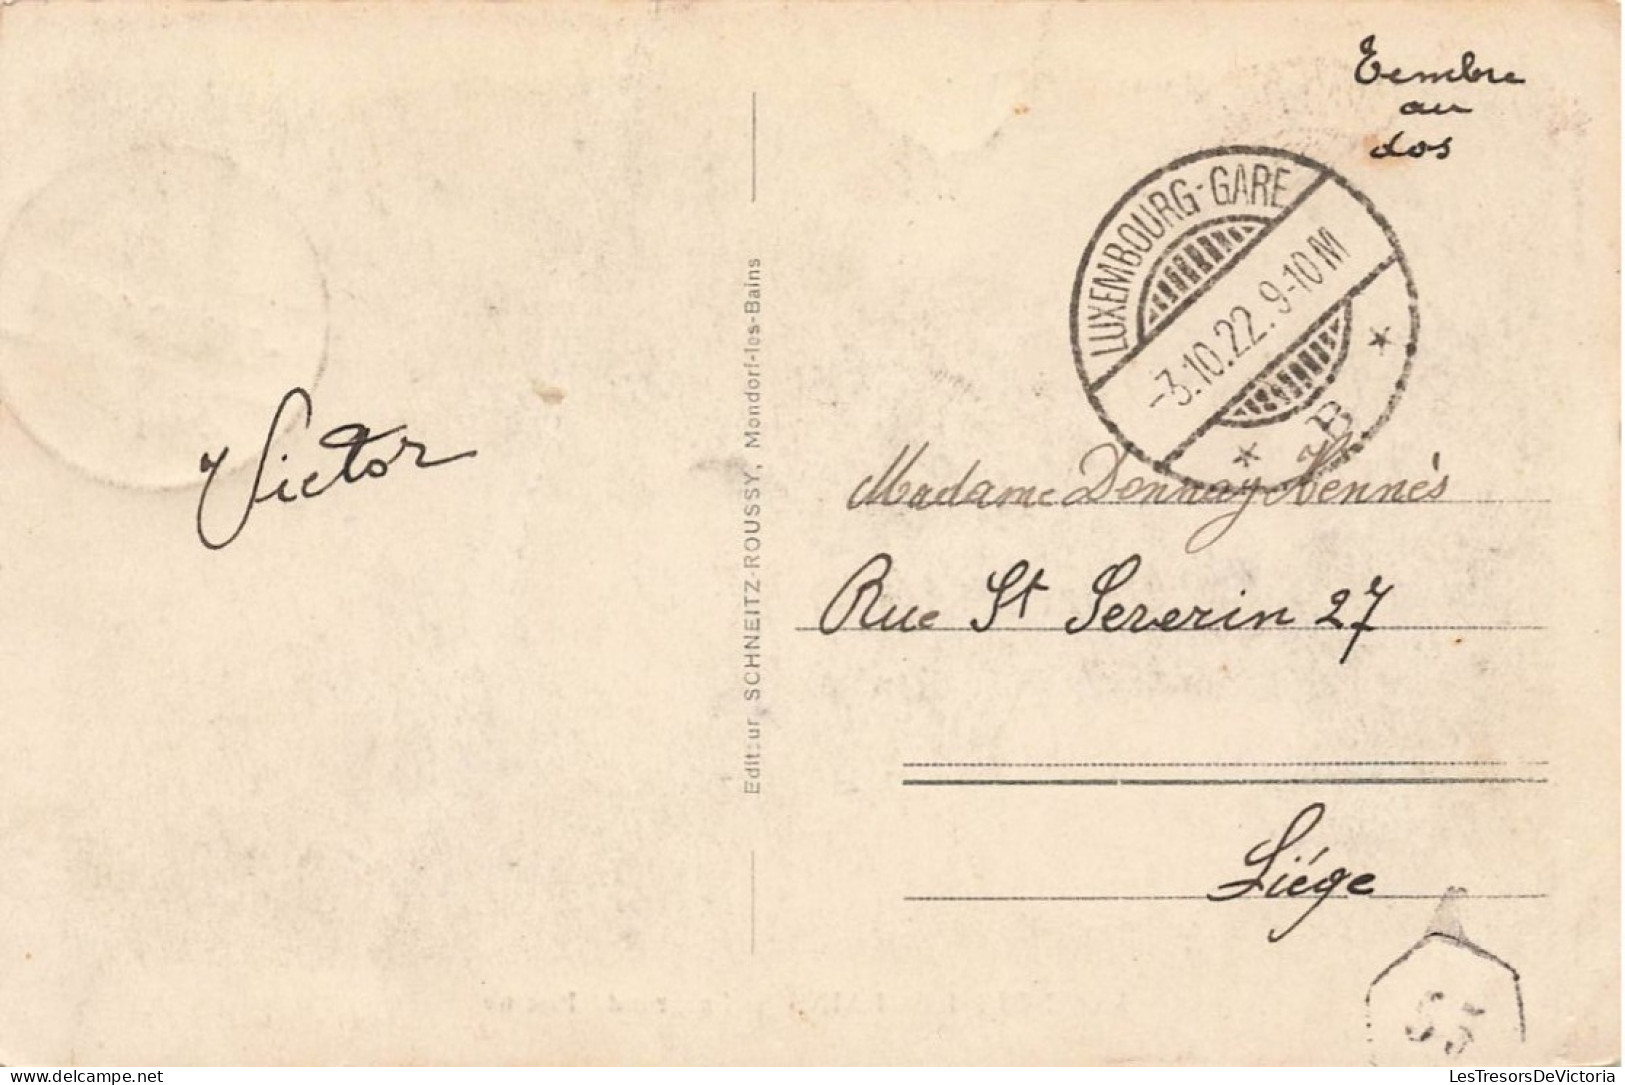 Tembre
au
dos
LUXEMBOURG-GARE
-3.10.22.9-10M
* B *
Victor
Editeur SCHNEITZ-ROUSSY, Mondorf-les-Bains
Madame Donnay Hennès
Rue St Severin 27
Liége
www.delcampe.net
LesTresorsDeVictoria